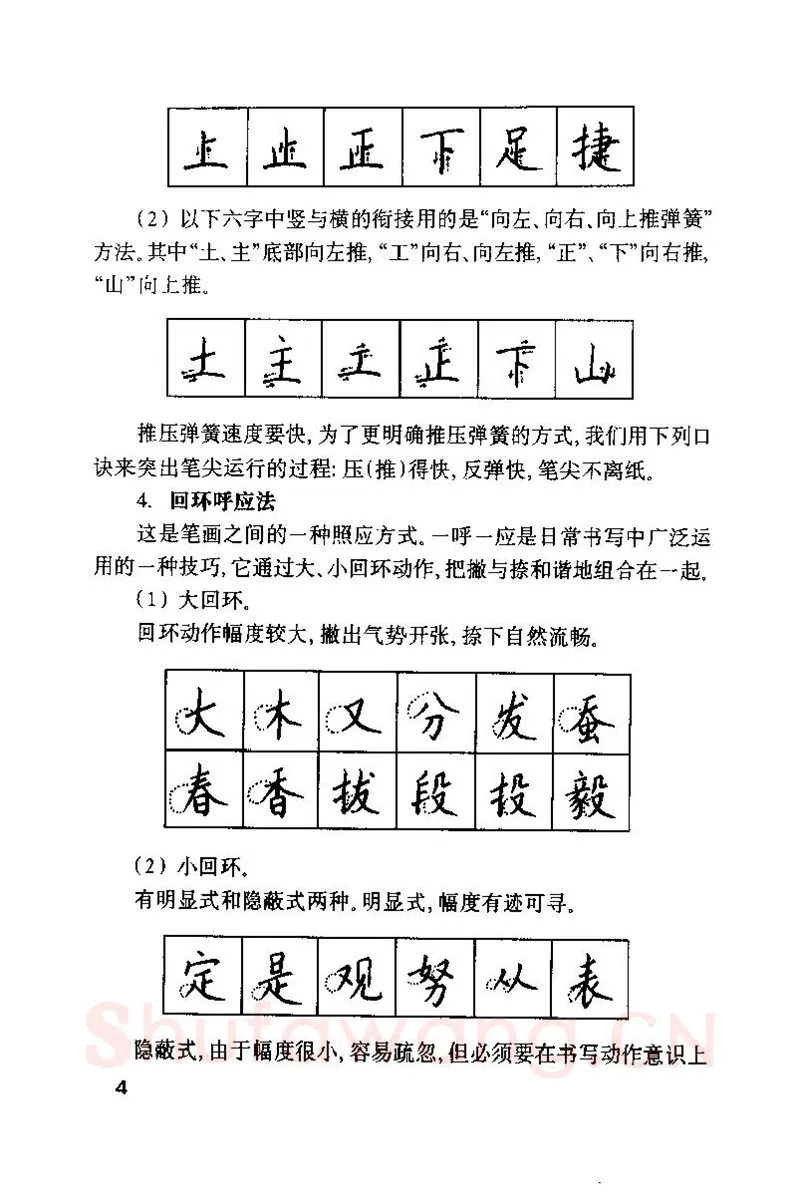 上 止 正 下 足 捷
(2) 以下六字中竖与横的衔接用的是“向左、向右、向上推弹簧”
方法。其中“土、主”底部向左推,“工”向右、向左推,“正”、“下”向右推,
“山”向上推。
土 主 工 正 下 山
推压弹簧速度要快,为了更明确推压弹簧的方式,我们用下列口
诀来突出笔尖运行的过程:压(推)得快,反弹快,笔尖不离纸。
4. 回环呼应法
这是笔画之间的一种照应方式。一呼一应是日常书写中广泛运
用的一种技巧,它通过大、小回环动作,把撇与捺和谐地组合在一起。
(1) 大回环。
回环动作幅度较大,撇出气势开张,捺下自然流畅。
大 木 又 分 发 蚕
春 香 拔 段 投 毅
(2) 小回环。
有明显式和隐蔽式两种。明显式,幅度有迹可寻。
定 是 观 努 从 表
隐蔽式,由于幅度很小,容易疏忽,但必须要在书写动作意识上
Shufawang.CN
4